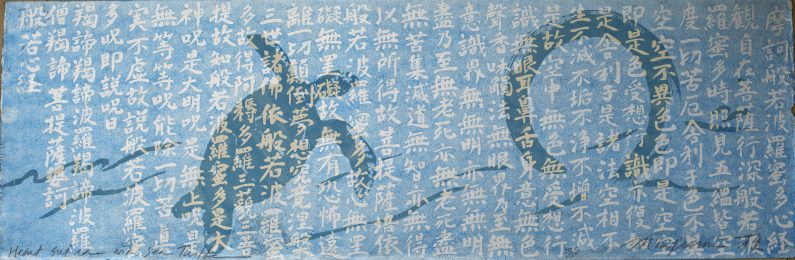 摩訶般若波羅蜜多心経
觀自在菩薩行深般若波
羅蜜多時照見五蘊皆空
度一切苦厄舎利子色不異
空空不異色色即是空空
即是色受想行識亦復如
是舎利子是諸法空相不
生不滅不垢不浄不増不減
是故空中無色無受想行
識無眼耳鼻舌身意無色
聲香味觸法無眼界乃至無
意識界無無明亦無無明
盡乃至無老死亦無老死盡
無苦集滅道無智亦無得
以無所得故菩提薩埵依
般若波羅蜜多故心無罣
礙無罣礙故無有恐怖遠
離一切顛倒夢想究竟涅槃
三世諸佛依般若波羅蜜
多故得阿耨多羅三藐三菩
提故知般若波羅蜜多是大
神呪是大明呪是無上呪是
無等等呪能除一切苦真
實不虚故説般若波羅蜜
多呪即説呪曰
羯諦羯諦波羅羯諦波羅
僧羯諦菩提薩婆訶
般若心経
Heart sutra with Sea Turtle